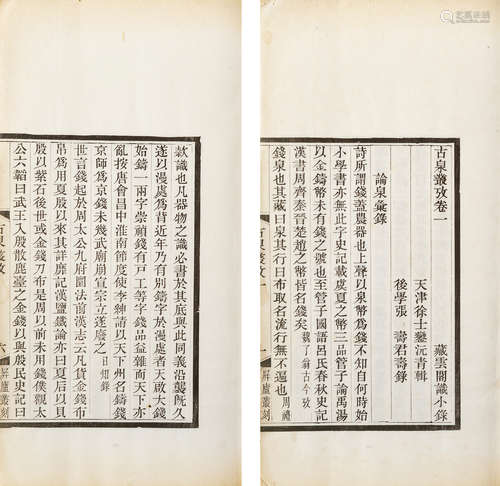 古泉叢攷卷一　藏雲閣識小錄
天津徐士鑾沅青輯
後學張壽君壽錄
論泉彙錄
詩所謂錢蓋農器也上聲以泉幣爲錢不知自何時始
小學書亦無此字史記載虞夏之幣三品管子論禹湯
以金鑄幣未有錢之號也至管子國語呂氏春秋史記
漢書周齊秦晉楚趙之幣皆名錢矣魏了翁古今攷
錢泉也其藏曰泉其行曰布取名流行無不遍也周禮
古泉叢攷　一　屏廬叢刻
款識也凡器物之識必書於其底與此同義沿襲既久
遂以漫處爲背近年乃有別鑄字於漫處者天啟大錢
始鑄一兩字崇禎錢有戶工等字錢品益雜而天下亦
亂按唐會昌中淮南節度使李紳請以天下州名鑄錢
京師爲京錢未幾武廟崩宣宗立遂廢之日知錄
世言錢起於周太公九府圜法前漢志云凡貨金錢布
帛爲用夏殷以來其詳靡記漢鹽鐵論亦曰夏后以貝
殷以紫石後世或金錢刀布是周以前未用錢僕觀太
公六韜曰武王入殷散鹿臺之金錢以與殷民史記曰
古泉叢攷　六　屏廬叢刻